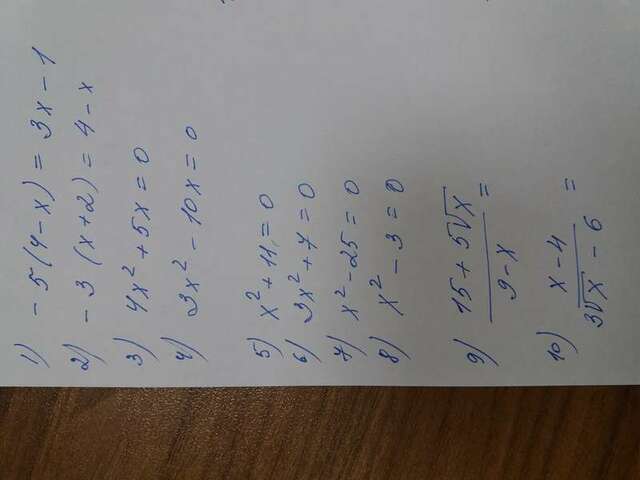 1) - 5(4-x) = 3x - 1
2) - 3 (x+2) = 4 - x
3) 4x² + 5x = 0
4) 3x² - 10x = 0
5) x² + 11 = 0
6) 3x² + 7 = 0
7) x² - 25 = 0
8) x² - 3 = 0
9) (15 + 5√x)/(9 - x) =
10) (x - 4)/(3√x - 6) =